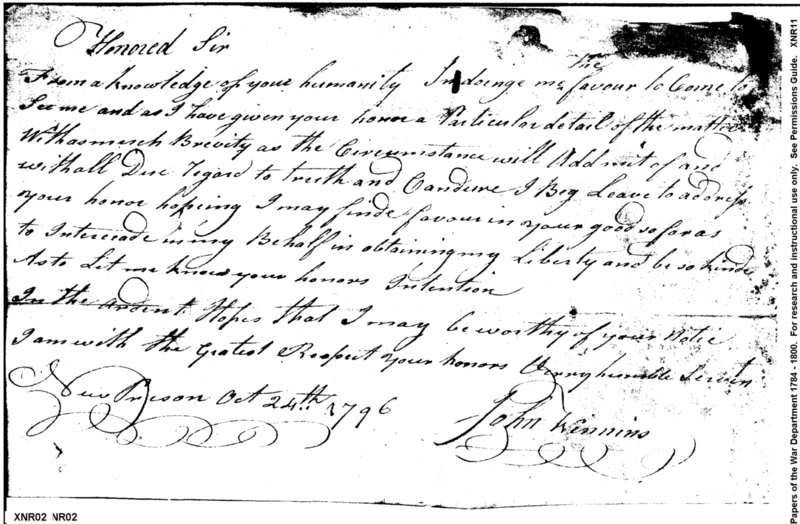 Honored Sir
The
From a knowledge of your humanity In doinge me favour to Come to
See me and as I have given your honor a Particular detail of the matter
With asmuch Brevity as the Circumstance will Addmit of and
with all Due regard to truth and Candure I Beg Leave to address
your honor hopeing I may finde favour in your good so far as
to Interceade in my Behalf in obtaining my Liberty and be so kinde
As to Let me know your honors Intention
In the ardent Hopes that I may be worthy of your Notic
I am with the Gratest Respect your honors Verry humble Servtn
New Prison Oct 24th 1796
John
XNR02 NR02
Papers of the War Department 1784 - 1800. For research and instructional use only. See Permissions Guide. XNR11